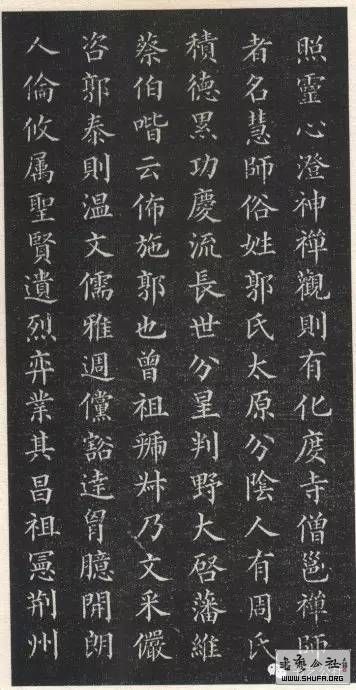 照靈心澄神禪觀則有化度寺僧邕禪師
者名慧師俗姓郭氏太原分陰人有周氏
積德累功慶流長世分星判野大啓藩維
蔡伯喈云佈施郭也曾祖叔乃文采儼
咨郭泰則温文儒雅週儻豁達胷臆開朗
人倫攸属聖賢遺烈弈業其昌祖憲荊州
书艺公社
WWW.SHUFA.ORG